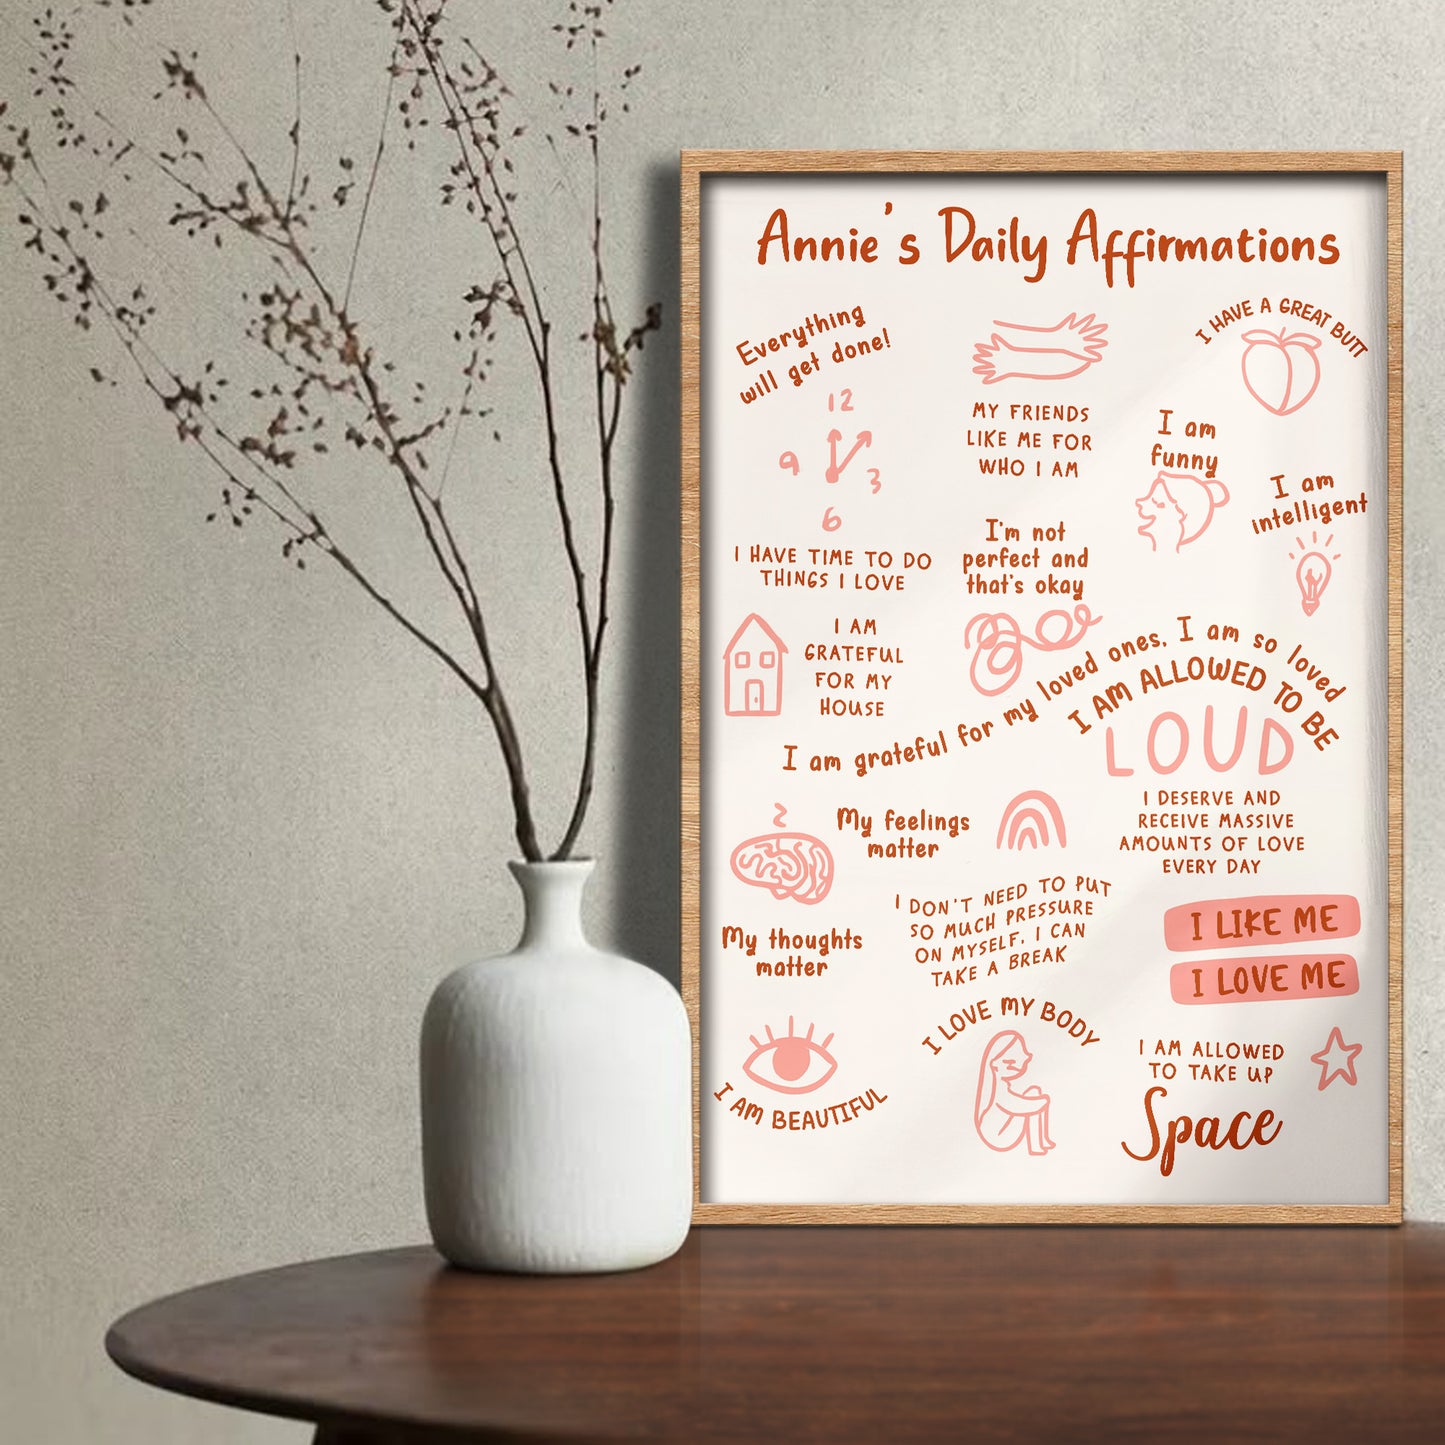 Annie's Daily Affirmations
Everything
will get done!
12
9
3
6
I HAVE TIME TO DO
THINGS I LOVE
MY FRIENDS
LIKE ME FOR
WHO I AM
I HAVE A GREAT BUTT
I am
funny
I am
intelligent
I'm not
perfect and
that's okay
I AM
GRATEFUL
FOR MY
HOUSE
I am grateful for my loved ones, I am so loved
I AM ALLOWED TO BE
LOUD
I DESERVE AND
RECEIVE MASSIVE
AMOUNTS OF LOVE
EVERY DAY
My feelings
matter
My thoughts
matter
I DON'T NEED TO PUT
SO MUCH PRESSURE
ON MYSELF, I CAN
TAKE A BREAK
I LIKE ME
I LOVE ME
I AM BEAUTIFUL
I LOVE MY BODY
I AM ALLOWED
TO TAKE UP
Space